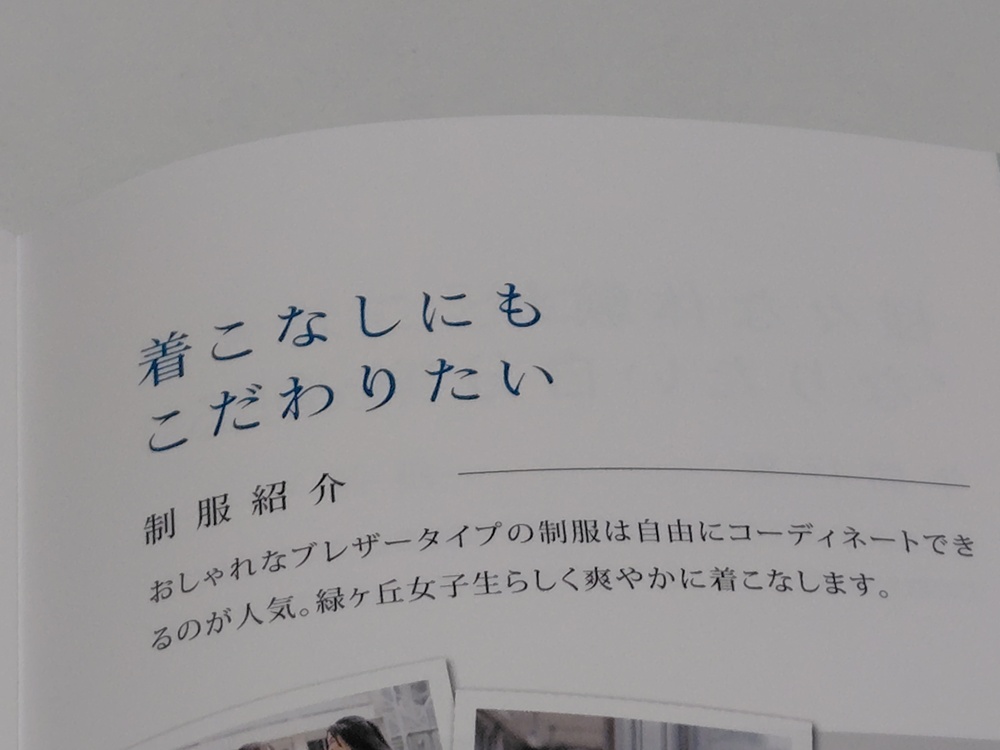 着こなしにも
こだわりたい
制服紹介
おしゃれなブレザータイプの制服は自由にコーディネートでき
るのが人気。緑ヶ丘女子生らしく爽やかに着こなします。